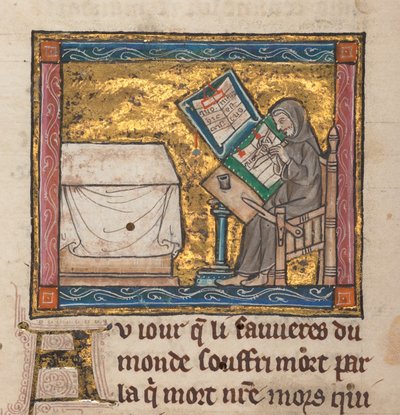 AV iour q̃ li sauueres du
monde souffri mort par
la q̃ mort nr̃e mors qui